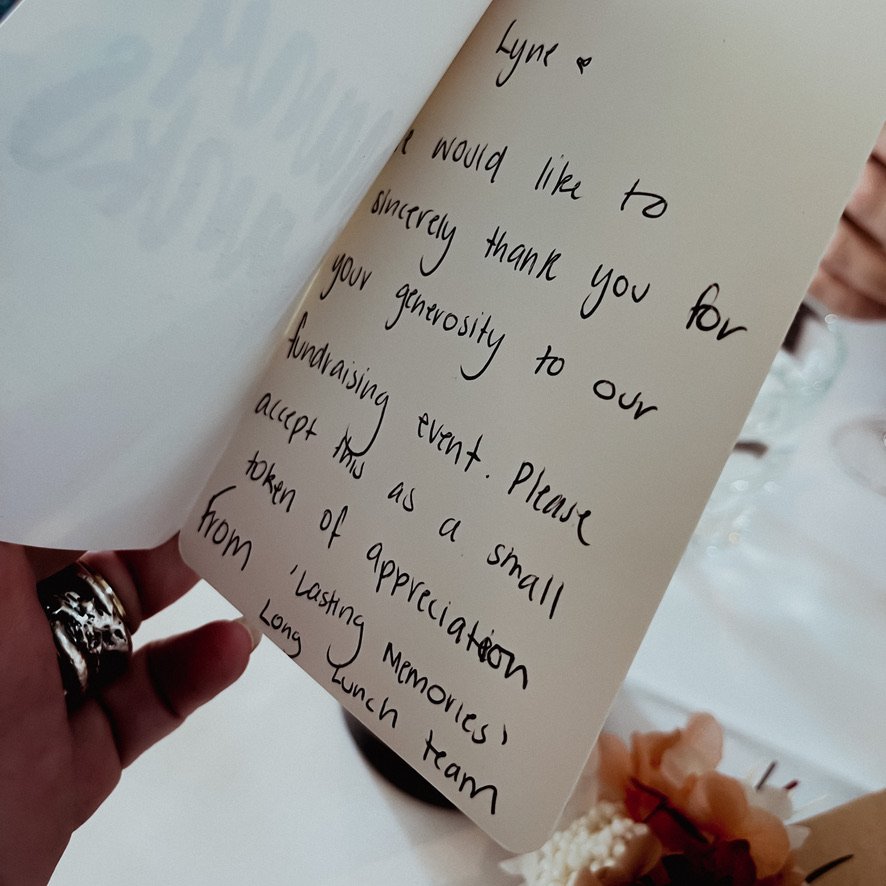 Lyne
would like to
sincerely thank you for
your generosity to our
fundraising event. Please
accept this as a small
token of appreciation
From 'Lasting Memories'
Long Lunch team